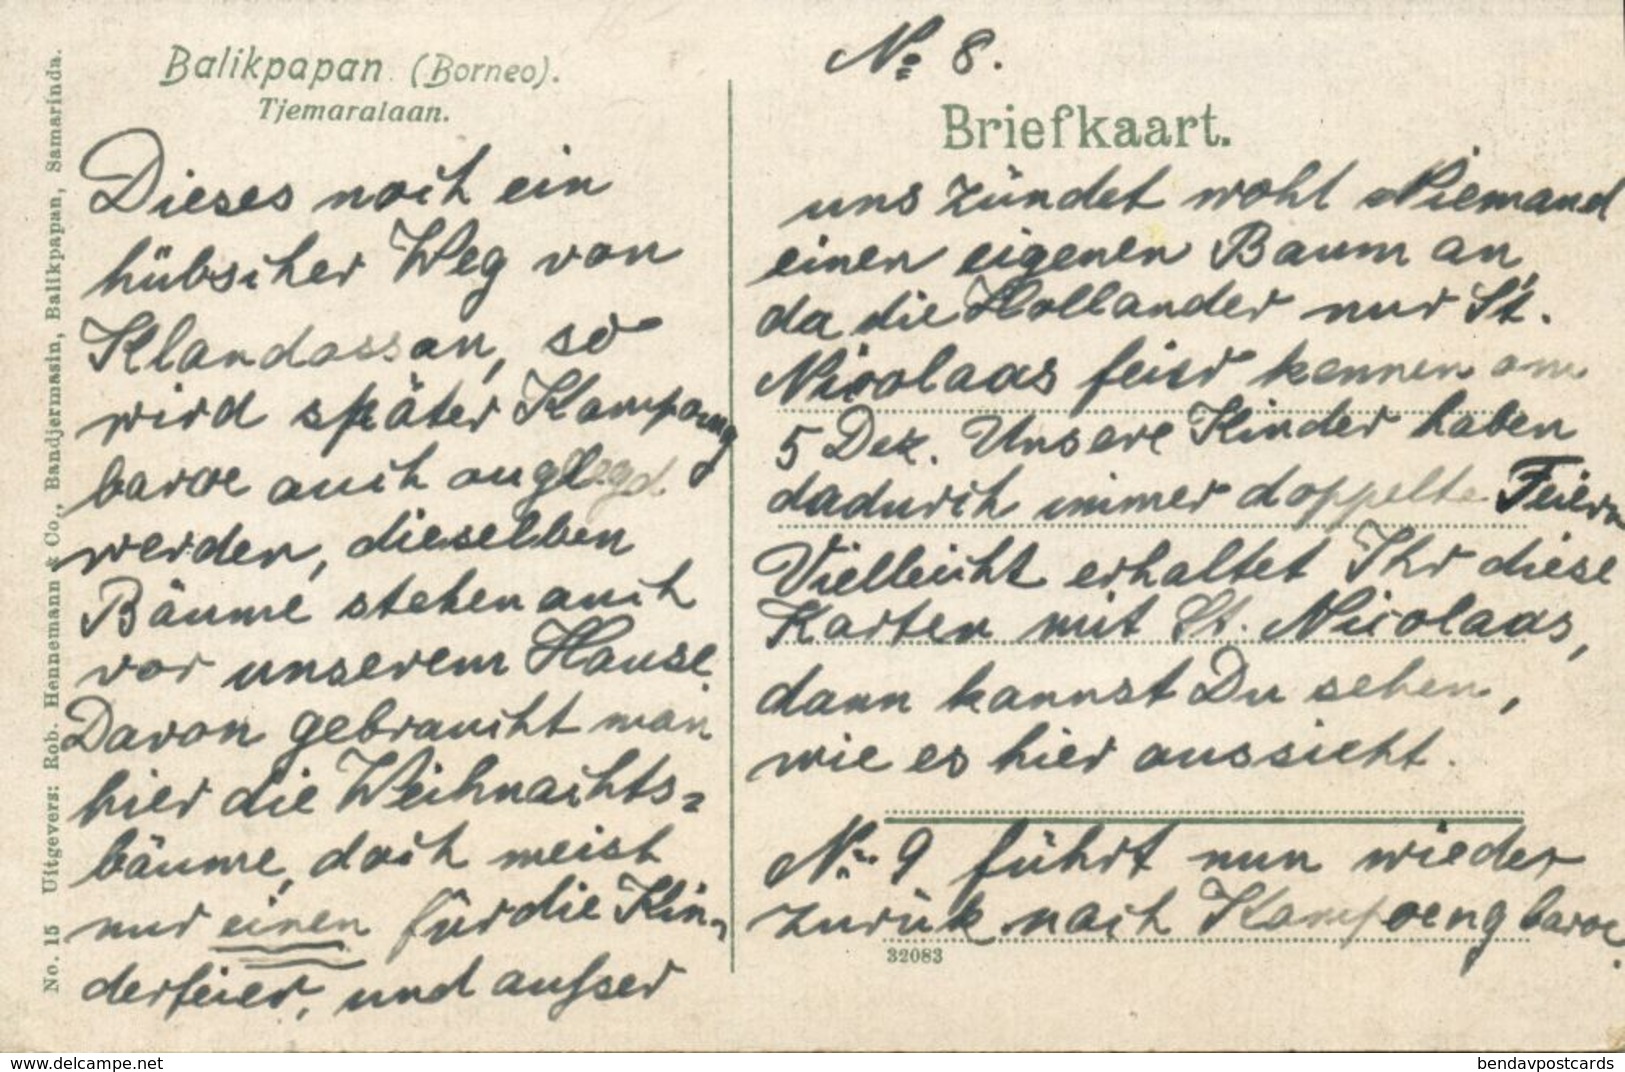 Balikpapan (Borneo).
Tjemaralaan.
Dieses noch ein
hübscher Weg von
Klandassan, so
wird später Kampong
baroe auch angelegd
werden, dieselben
Bäume stehen auch
vor unserem Hause.
Davon gebraucht man
hier die Weihnachts=
bäume, doch meist
nur einen für die Kin-
derfeier, und ausser
No. 15 Uitgevers: Rob. Hennemann & Co., Bandjermasin, Balikpapan, Samarinda.
No 8.
Briefkaart.
uns zündet wohl Niemand
einen eigenen Baum an,
da die Hollander nur St.
Nicolaas feier kennen am
5 Dez. Unsere Kinder haben
dadurch immer doppelte Feiern
Vielleicht erhaltet Ihr diese
Karten mit St. Nicolaas,
dann kannst Du sehen,
wie es hier aussieht.
No. 9 führt nun wieder
zurük nach Kampoeng baroe.
32083
http://www.delcampe.net
bendavpostcards